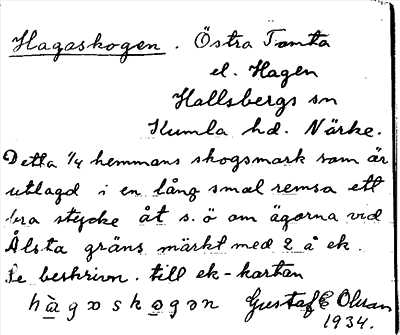 Hagaskogen. Östra Tomta
el. Hagen
Hallsbergs sn
Kumla hd. Närke.
Detta 1/4 hemmans skogsmark som är
utlagd i en lång smal remsa ett
bra stycke åt s.ö om ägorna vid
Ålsta gräns märkt med 2 å ek.
Se beskrivn. till ek-kartan
hàgɔskɔgɔn Gustaf E Olsson
1934.